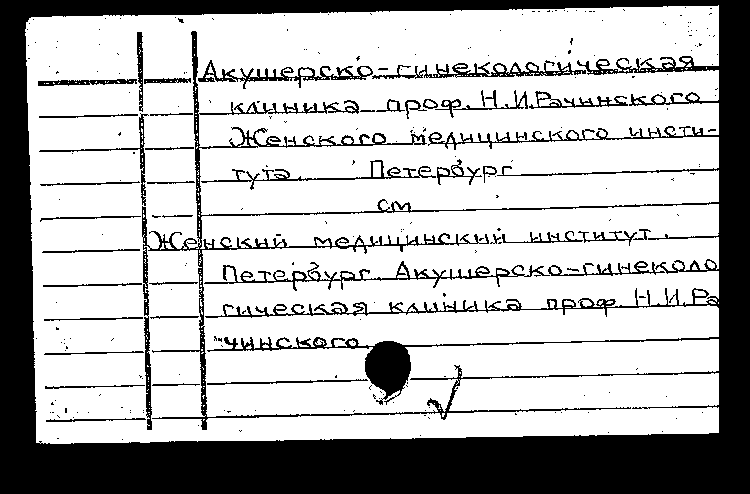 Акушерско-гинекологическая
клиника проф. Н.И.Рачинского
Женского медицинского инсти-
тута. Петербург
см
Женский медицинский институт.
Петербург. Акушерско-гинеколо
гическая клиника проф. Н.И.Ра
чинского.